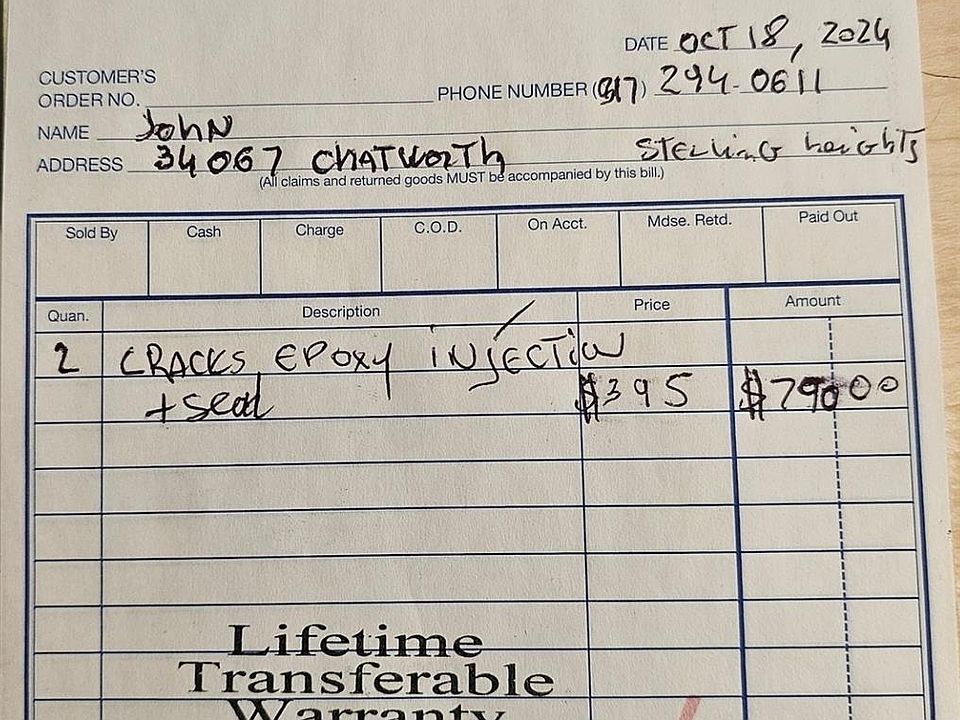 DATE OCT 18, 2024
CUSTOMER'S
ORDER NO. PHONE NUMBER (317) 294-0611
NAME John
ADDRESS 34067 CHATWORTH STERLING heights
(All claims and returned goods MUST be accompanied by this bill.)
Sold By Cash Charge C.O.D. On Acct. Mdse. Retd. Paid Out
Quan. Description Price Amount
2 CRACKS EPOXY INJECTION
+ seal $395 $790 00
Lifetime
Transferable
Warranty